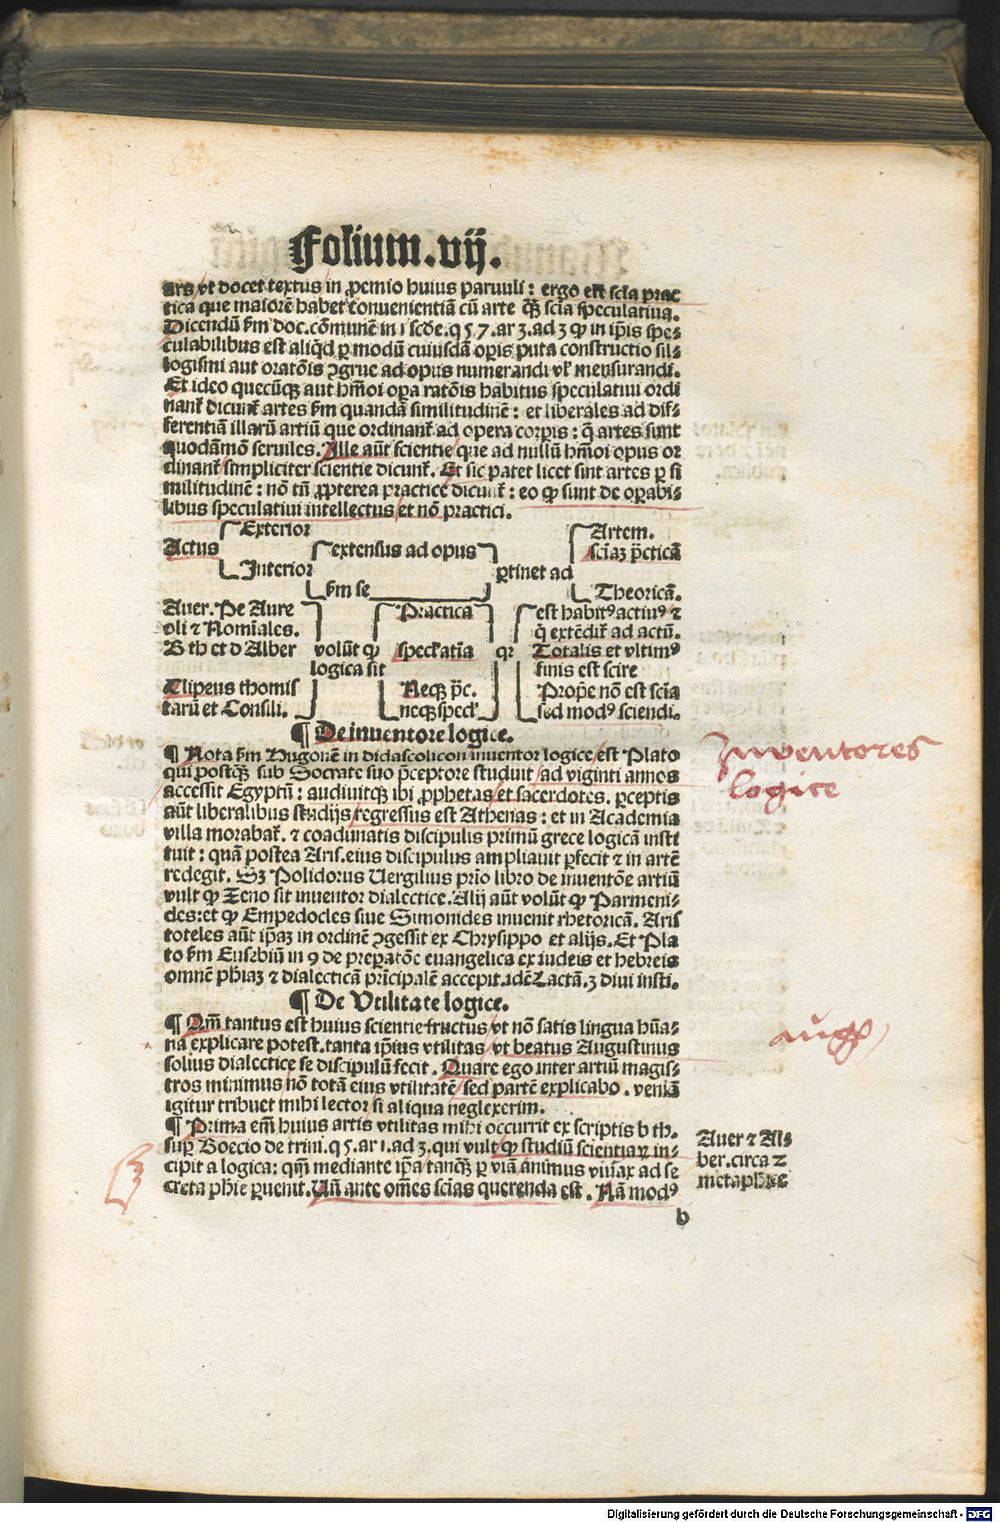 Folium.vij.
ars vt docet textus in ꝓemio huius paruuli: ergo est scīa prac
tica que maiorē habet conuenientiā cū arte qᷓꝫ scīa speculatiua.
Dicendū ẜm doc. cōmunē in 1 scđe. q 57. ar 3. ad 3 ꝙ in ip̄is spe⸗
culabilibus est aliq̄d ꝑ modū cuiusdā oꝑis puta constructio sil⸗
logismi aut oratōis ꝯgrue ad opus numerandi vĺ mensurandi.
Et ideo quecūqꝫ aut hm̄oi oꝑa ratōis habitus speculatiui ordi
nant̄ dicunt̄ artes ẜm quandā similitudinē: et liberales ad dif⸗
ferentiā illarū artiū que ordinant̄ ad opera corꝑis: q̄ artes sunt
quodāmō seruiles. Ille aūt scientie que ad nullū hm̄oi opus or
dinant̄ simpliciter scientie dicunt̄. Et sic patet licet sint artes ꝑ si
militudinē: nō tn̄ ꝓpterea practice dicunt̄: eo ꝙ sunt de oꝑabi⸗
libus speculatiui intellectus et nō practici.
Exterior Artem.
Actus extensus ad opus scīaꝫ p̄cticā
Interior ꝑtinet ad
ẜm se Theoricā.
Auer. De Aure Practica est habitꝰ actiuꝰ ⁊
oli ⁊ Nomīales. q̄ extēdit̄ ad actū.
B th et d Alber volūt ꝙ speclatīa qꝛ Totalis et vltimꝰ
logica sit finis est scire
Clipeus thomis Neqꝫ p̄c. Prop̄e nō est scīa
tarū et Consili. neqꝫ specl̄ sed modꝰ sciendi.
¶ De inuentore logice.
¶ Nota ẜm Hugonē in didascolicon inuentor logice est Plato
qui postqᷓꝫ sub Socrate suo p̄ceptore studuit ad viginti annos
accessit Egyptū: audiuitqꝫ ibi ꝓphetas et sacerdotes. ꝑceptis
aūt liberalibus studijs regressus est Athenas: et in Academia
villa morabat̄. ⁊ coadunatis discipulis primū grece logicā insti
tuit: quā postea Aris. eius discipulus ampliauit ꝑfecit ⁊ in artē
redegit. Sꝫ Polidorus Uergilius prīo libro de inuentōe artiū
vult ꝙ Zeno sit inuentor dialectice. Alij aūt volūt ꝙ Parmeni⸗
des: et ꝙ Empedocles siue Simonides inuenit rhetoricā. Aris
toteles aūt ip̄aꝫ in ordinē ꝯgessit ex Chrysippo et alijs. Et Pla
to ẜm Eusebiū in 9 de preꝑatōe euangelica ex iudeis et hebreis
omnē phīaꝫ ⁊ dialecticā prīcipalē accepit. idē Lactā. 3 diui insti.
¶ De Utilitate logice.
¶ Qm̄ tantus est huius scientie fructus vt nō satis lingua hūa⸗
na explicare potest. tanta ip̄ius vtilitas vt beatus Augustinus
solius dialectice se discipulū fecit. Quare ego inter artiū magis⸗
tros minimus nō totā eius vtilitatē sed partē explicabo. veniā
igitur tribuet mihi lector si aliqua neglexerim.
¶ Prima em̄ huius artis vtilitas mihi occurrit ex scriptis b th.
suꝑ Boecio de trini. q 5. ar 1. ad 3. qui vult ꝙ studiū scientiaꝝ in⸗
cipit a logica: qm̄ mediante ip̄a tanqᷓꝫ ꝑ viā animus viuax ad se
creta phīe ꝑuenit. Un̄ ante om̄es scīas querenda est. Nā modꝰ
b
Inuentores
logice
Aug
Auer ⁊ Al⸗
ber. circa 2
metaphice
Digitalisierung gefördert durch die Deutsche Forschungsgemeinschaft - DFG